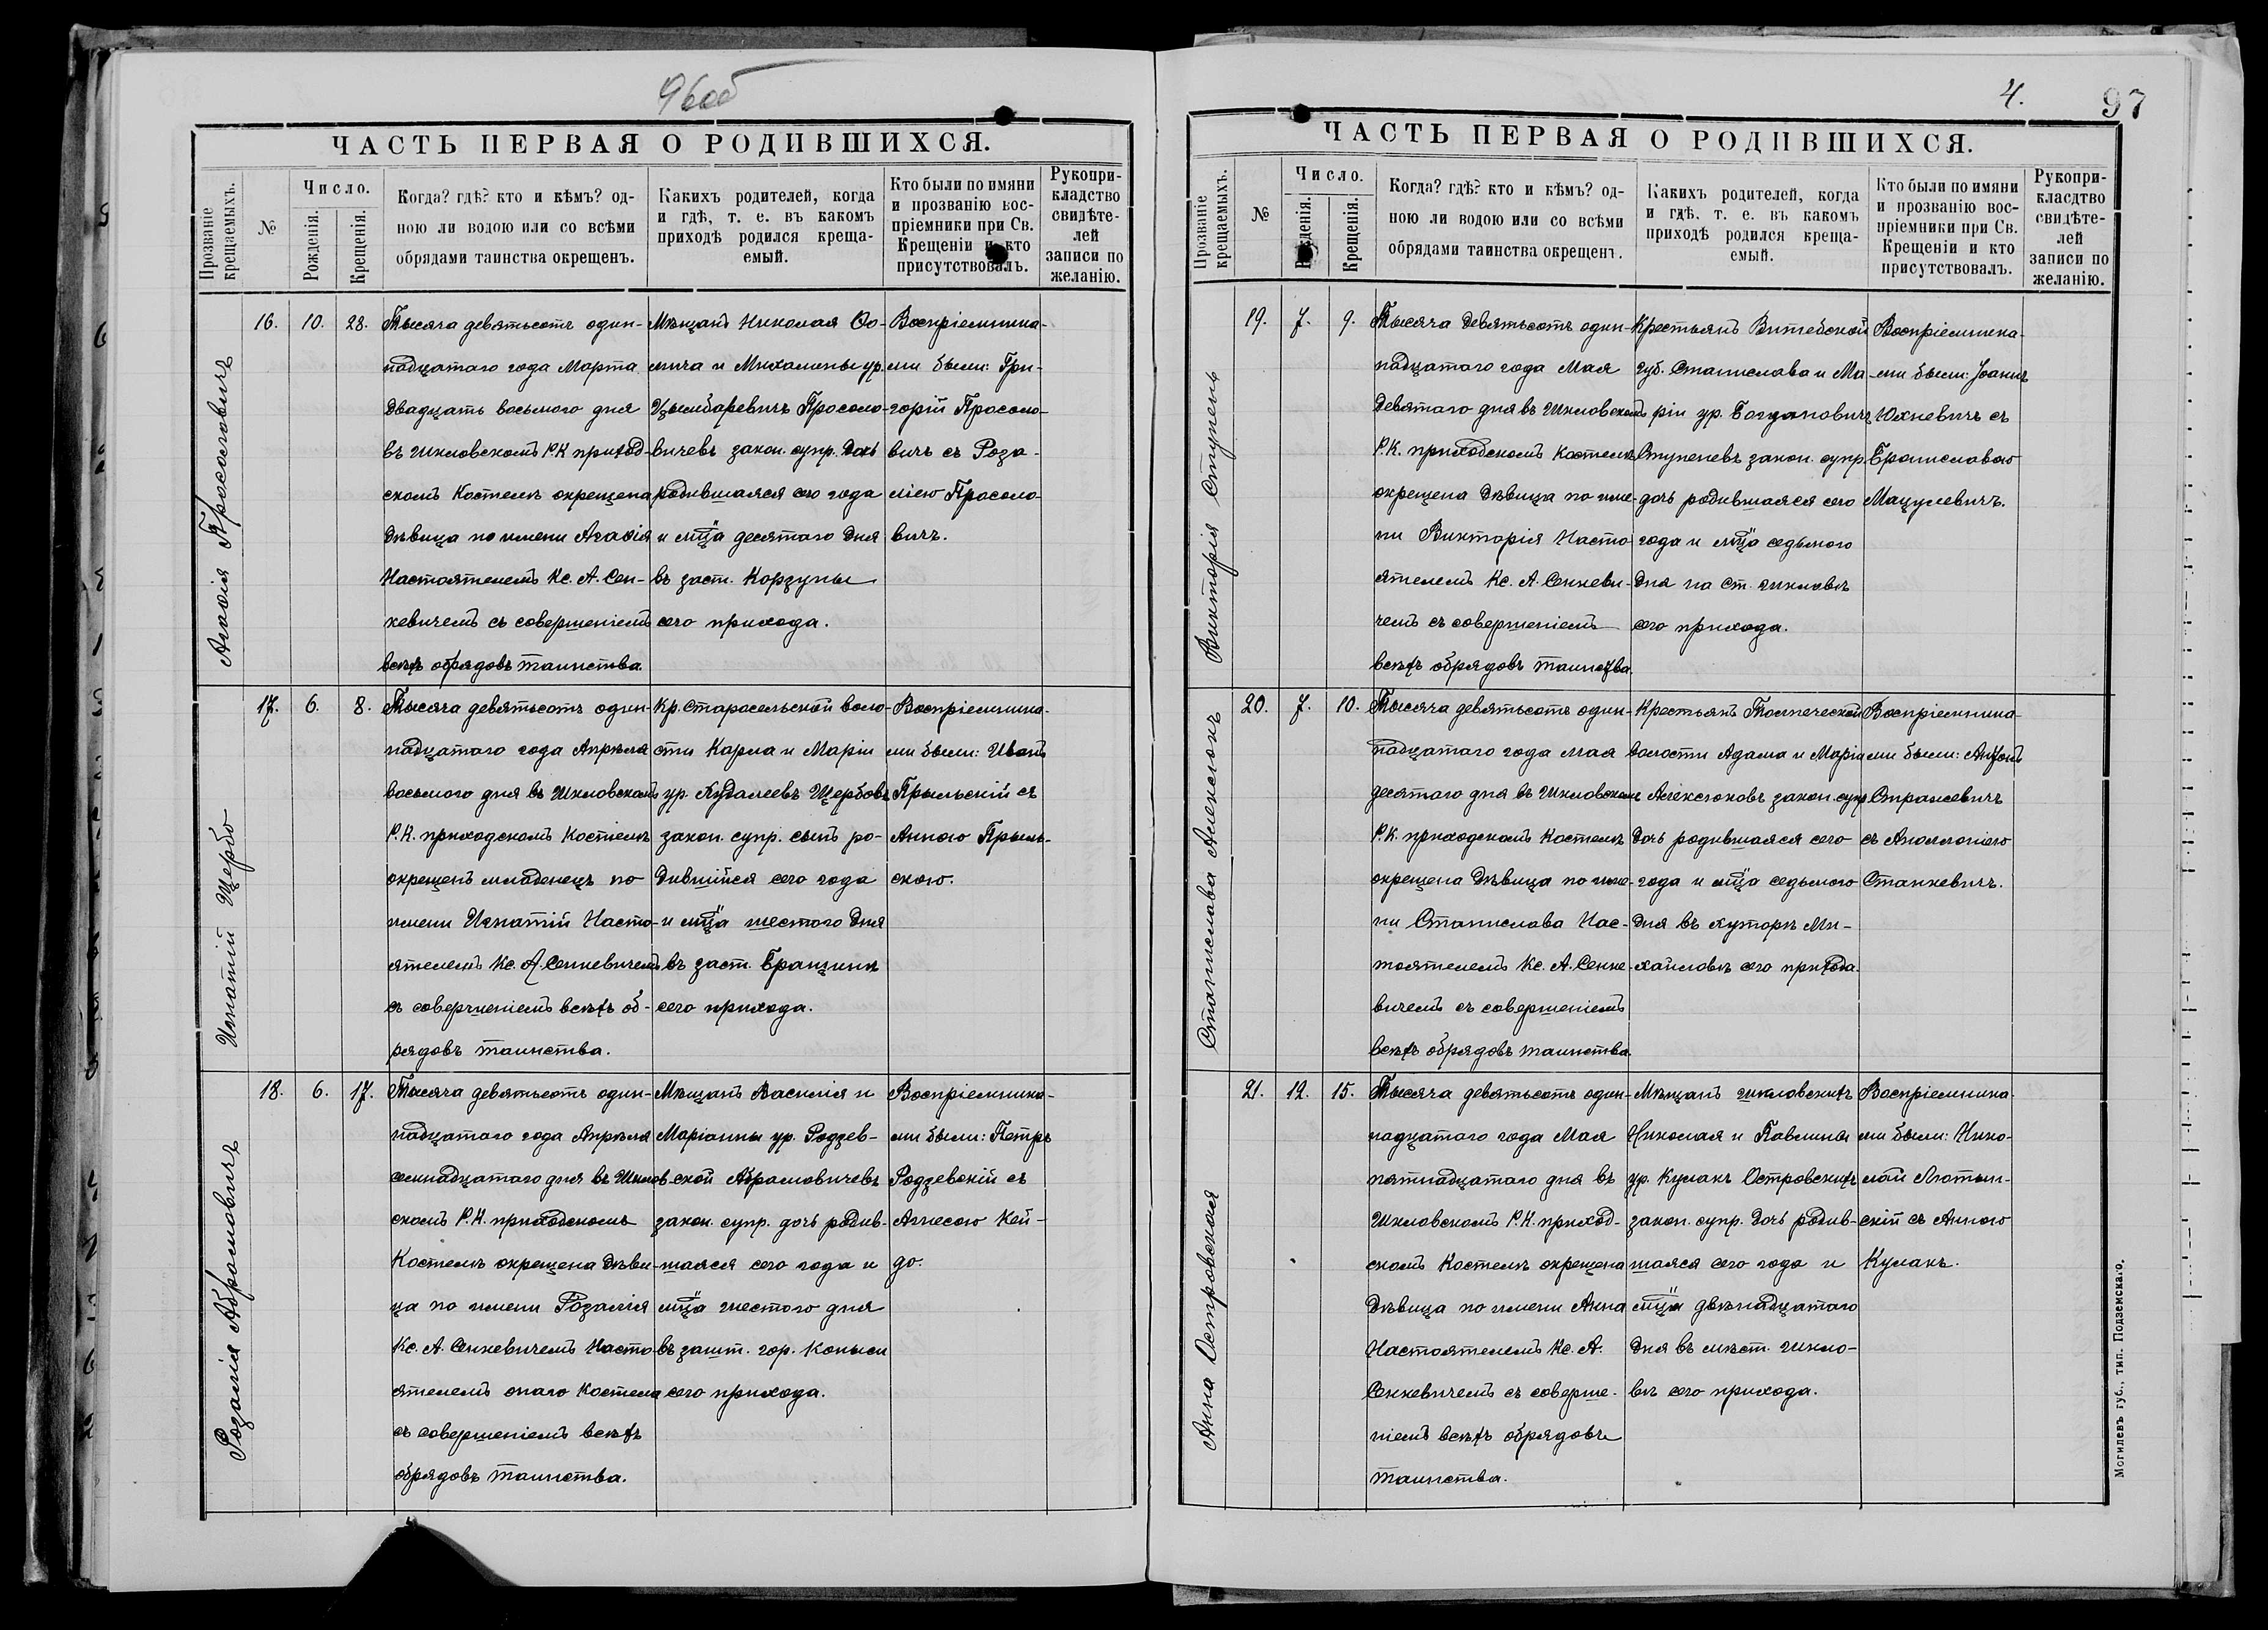 96об
ЧАСТЬ ПЕРВАЯ О РОДИВШИХСЯ.
Прозваніе крещаемыхъ.
№
Число.
Рожденія.
Крещенія.
Когда? гдѣ? кто и кѣмъ? од-
ною ли водою или со всѣми
обрядами таинства окрещенъ.
Какихъ родителей, когда
и гдѣ, т. е. въ какомъ
приходѣ родился креща-
емый.
Кто были по имяни
и прозванію вос-
пріемники при Св.
Крещеніи и кто
присутствовалъ.
Рукопри-
кладство
свидѣте-
лей
записи по
желанію.
Агафія Просоловичъ
16. 10. 28.
Тысяча девятьсотъ один-
надцатаго года Марта
двадцать восьмого дня
въ Шкловскомъ РК приход-
скомъ Костелѣ окрещена
дѣвица по имени Агафія
Настоятелемъ Кс. А. Сен-
кевичемъ съ совершеніемъ
всѣхъ обрядовъ таинства.
Мѣщанъ Николая Фо-
мича и Михалины ур.
Цымбаревичъ Просоло-
вичевъ закон. супр. дочь
родившаяся сего года
и мца десятаго дня
въ заст. Корзуны
сего прихода.
Воспріемника-
ми были: Гри-
горій Просоло-
вичъ съ Роза-
ліею Просоло-
вичъ.
Игнатій Щербо
17. 6. 8.
Тысяча девятьсотъ один-
надцатаго года Апрѣля
восьмого дня въ Шкловскомъ
Р.К. приходскомъ Костелѣ
окрещенъ младенецъ по
имени Игнатій Насто-
ятелемъ Кс. А. Сенкевичемъ
съ совершеніемъ всѣхъ об-
рядовъ таинства.
Кр. Старосельской воло-
сти Карла и Маріи
ур. Кудалеевъ Щербовъ
закон. супр. сынъ ро-
дившійся сего года
и мца шестого дня
въ заст. Бранцинѣ
сего прихода.
Воспріемника-
ми были: Иванъ
Прыльскій съ
Анною Прыль-
скою.
Розалія Абрамовичъ
18. 6. 17.
Тысяча девятьсотъ один-
надцатаго года Апрѣля
семнадцатаго дня въ Шклов-
скомъ Р.К. приходскомъ
Костелѣ окрещена дѣви-
ца по имени Розалія
Кс. А. Сенкевичемъ Насто-
ятелемъ онаго Костела
съ совершеніемъ всѣхъ
обрядовъ таинства.
Мѣщанъ Василія и
Маріанны ур. Родзев-
ской Абрамовичевъ
закон. супр. дочь родив-
шаяся сего года и
мца шестого дня
въ зашт. гор. Копыси
сего прихода.
Воспріемника-
ми были: Петръ
Родзевскій съ
Агнесою Кей-
до.
4.
97
ЧАСТЬ ПЕРВАЯ О РОДИВШИХСЯ.
Прозваніе крещаемыхъ.
№
Число.
Рожденія.
Крещенія.
Когда? гдѣ? кто и кѣмъ? од-
ною ли водою или со всѣми
обрядами таинства окрещенъ.
Какихъ родителей, когда
и гдѣ, т. е. въ какомъ
приходѣ родился креща-
емый.
Кто были по имяни
и прозванію вос-
пріемники при Св.
Крещеніи и кто
присутствовалъ.
Рукопри-
класдтво
свидѣте-
лей
записи по
желанію.
Викторія Ступень
19. 7. 9.
Тысяча девятьсотъ один-
надцатаго года Мая
девятаго дня въ Шкловскомъ
Р.К. приходскомъ Костелѣ
окрещена дѣвица по име-
ни Викторія Насто-
ятелемъ Кс. А. Сенкеви-
чемъ съ совершеніемъ
всѣхъ обрядовъ таинства.
Крестьянъ Витебской
губ. Станислава и Ма-
ріи ур. Богдановичъ
Ступеневъ закон. супр.
дочь родившаяся сего
года и мца седьмого
дня на ст. Шкловѣ
сего прихода.
Воспріемника-
ми были: Іоаннъ
Юхневичъ съ
Брониславою
Мацулевичъ.
Станислава Алексюкъ
20. 7. 10.
Тысяча девятьсотъ один-
надцатаго года мая
десятаго дня въ Шкловскомъ
Р.К. приходскомъ Костелѣ
окрещена дѣвица по име-
ни Станислава Нас-
тоятелемъ Кс. А. Сенке-
вичемъ съ совершеніемъ
всѣхъ обрядовъ таинства.
Крестьянъ Толпеческой
волости Адама и Маріи
Алексюковъ закон. супр.
дочь родившаяся сего
года и мца седьмого
дня въ хуторѣ Ми-
хайловѣ сего прихода.
Воспріемника-
ми были: Антонъ
Стражевичъ
съ Аполлоніею
Станкевичъ.
Анна Островская
21. 12. 15.
Тысяча девятьсотъ один-
надцатаго года Мая
пятнадцатаго дня въ
Шкловскомъ Р.К. приход-
скомъ Костелѣ окрещена
дѣвица по имени Анна
Настоятелемъ Кс. А.
Сенкевичемъ съ соверше-
ніемъ всѣхъ обрядовъ
таинства.
Мѣщанъ Шкловскихъ
Николая и Павлины
ур. Кулакъ Островскихъ
закон. супр. дочь родив-
шаяся сего года и
мца двѣнадцатаго
дня въ мѣст. Шкло-
вѣ сего прихода.
Воспріемника-
ми были: Нико-
лай Лютын-
скій съ Анною
Кулакъ.
Могилевъ губ., тип. Подземскаго.